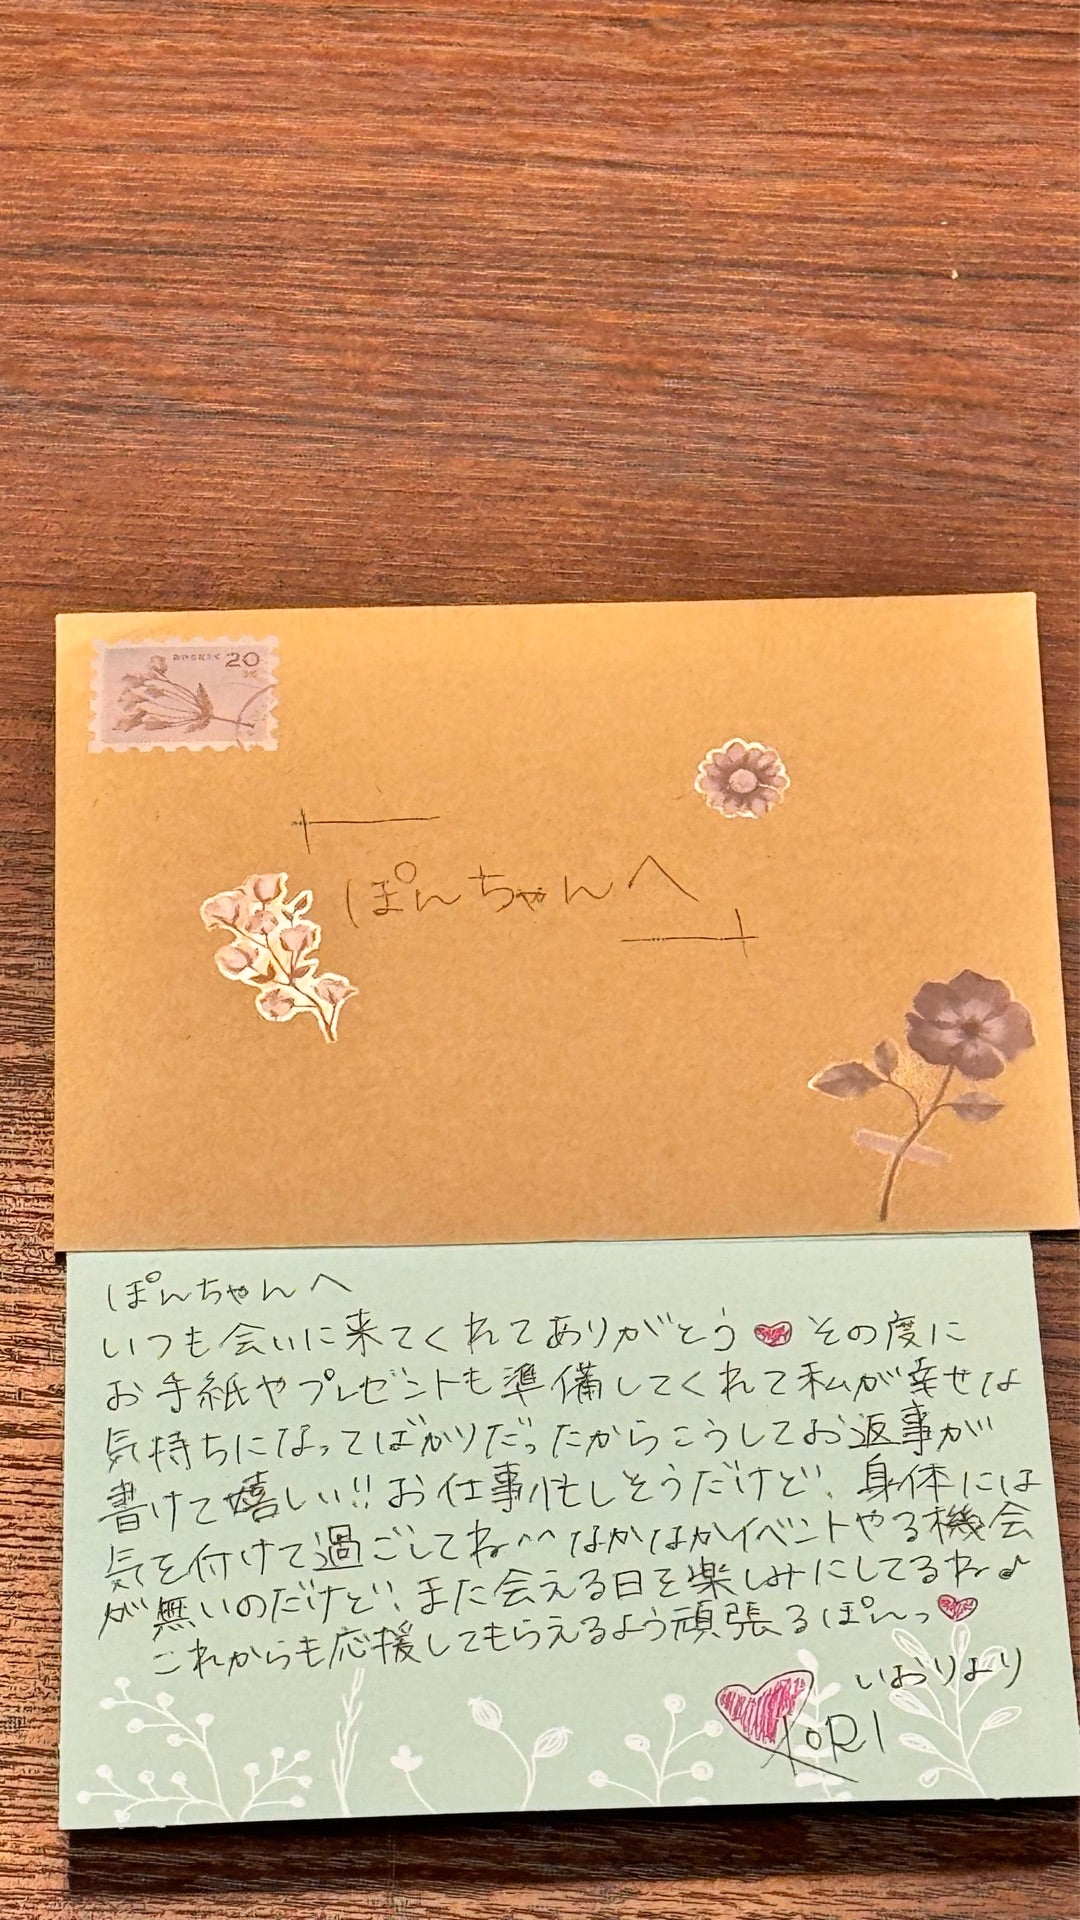 20
ぽんちゃんへ
ぽんちゃんへ
いつも会いに来てくれてありがとう♥その度に
お手紙やプレゼントも準備してくれて私が幸せな
気持ちになってばかりだったからこうしてお返事が
書けて嬉しい!!お仕事忙しそうだけど、身体には
気を付けて過ごしてね^^なかなかイベントやる機会
が無いのだけど、また会える日を楽しみにしてるね♪
これからも応援してもらえるよう頑張るぽんっ♥
いおりより
IORI